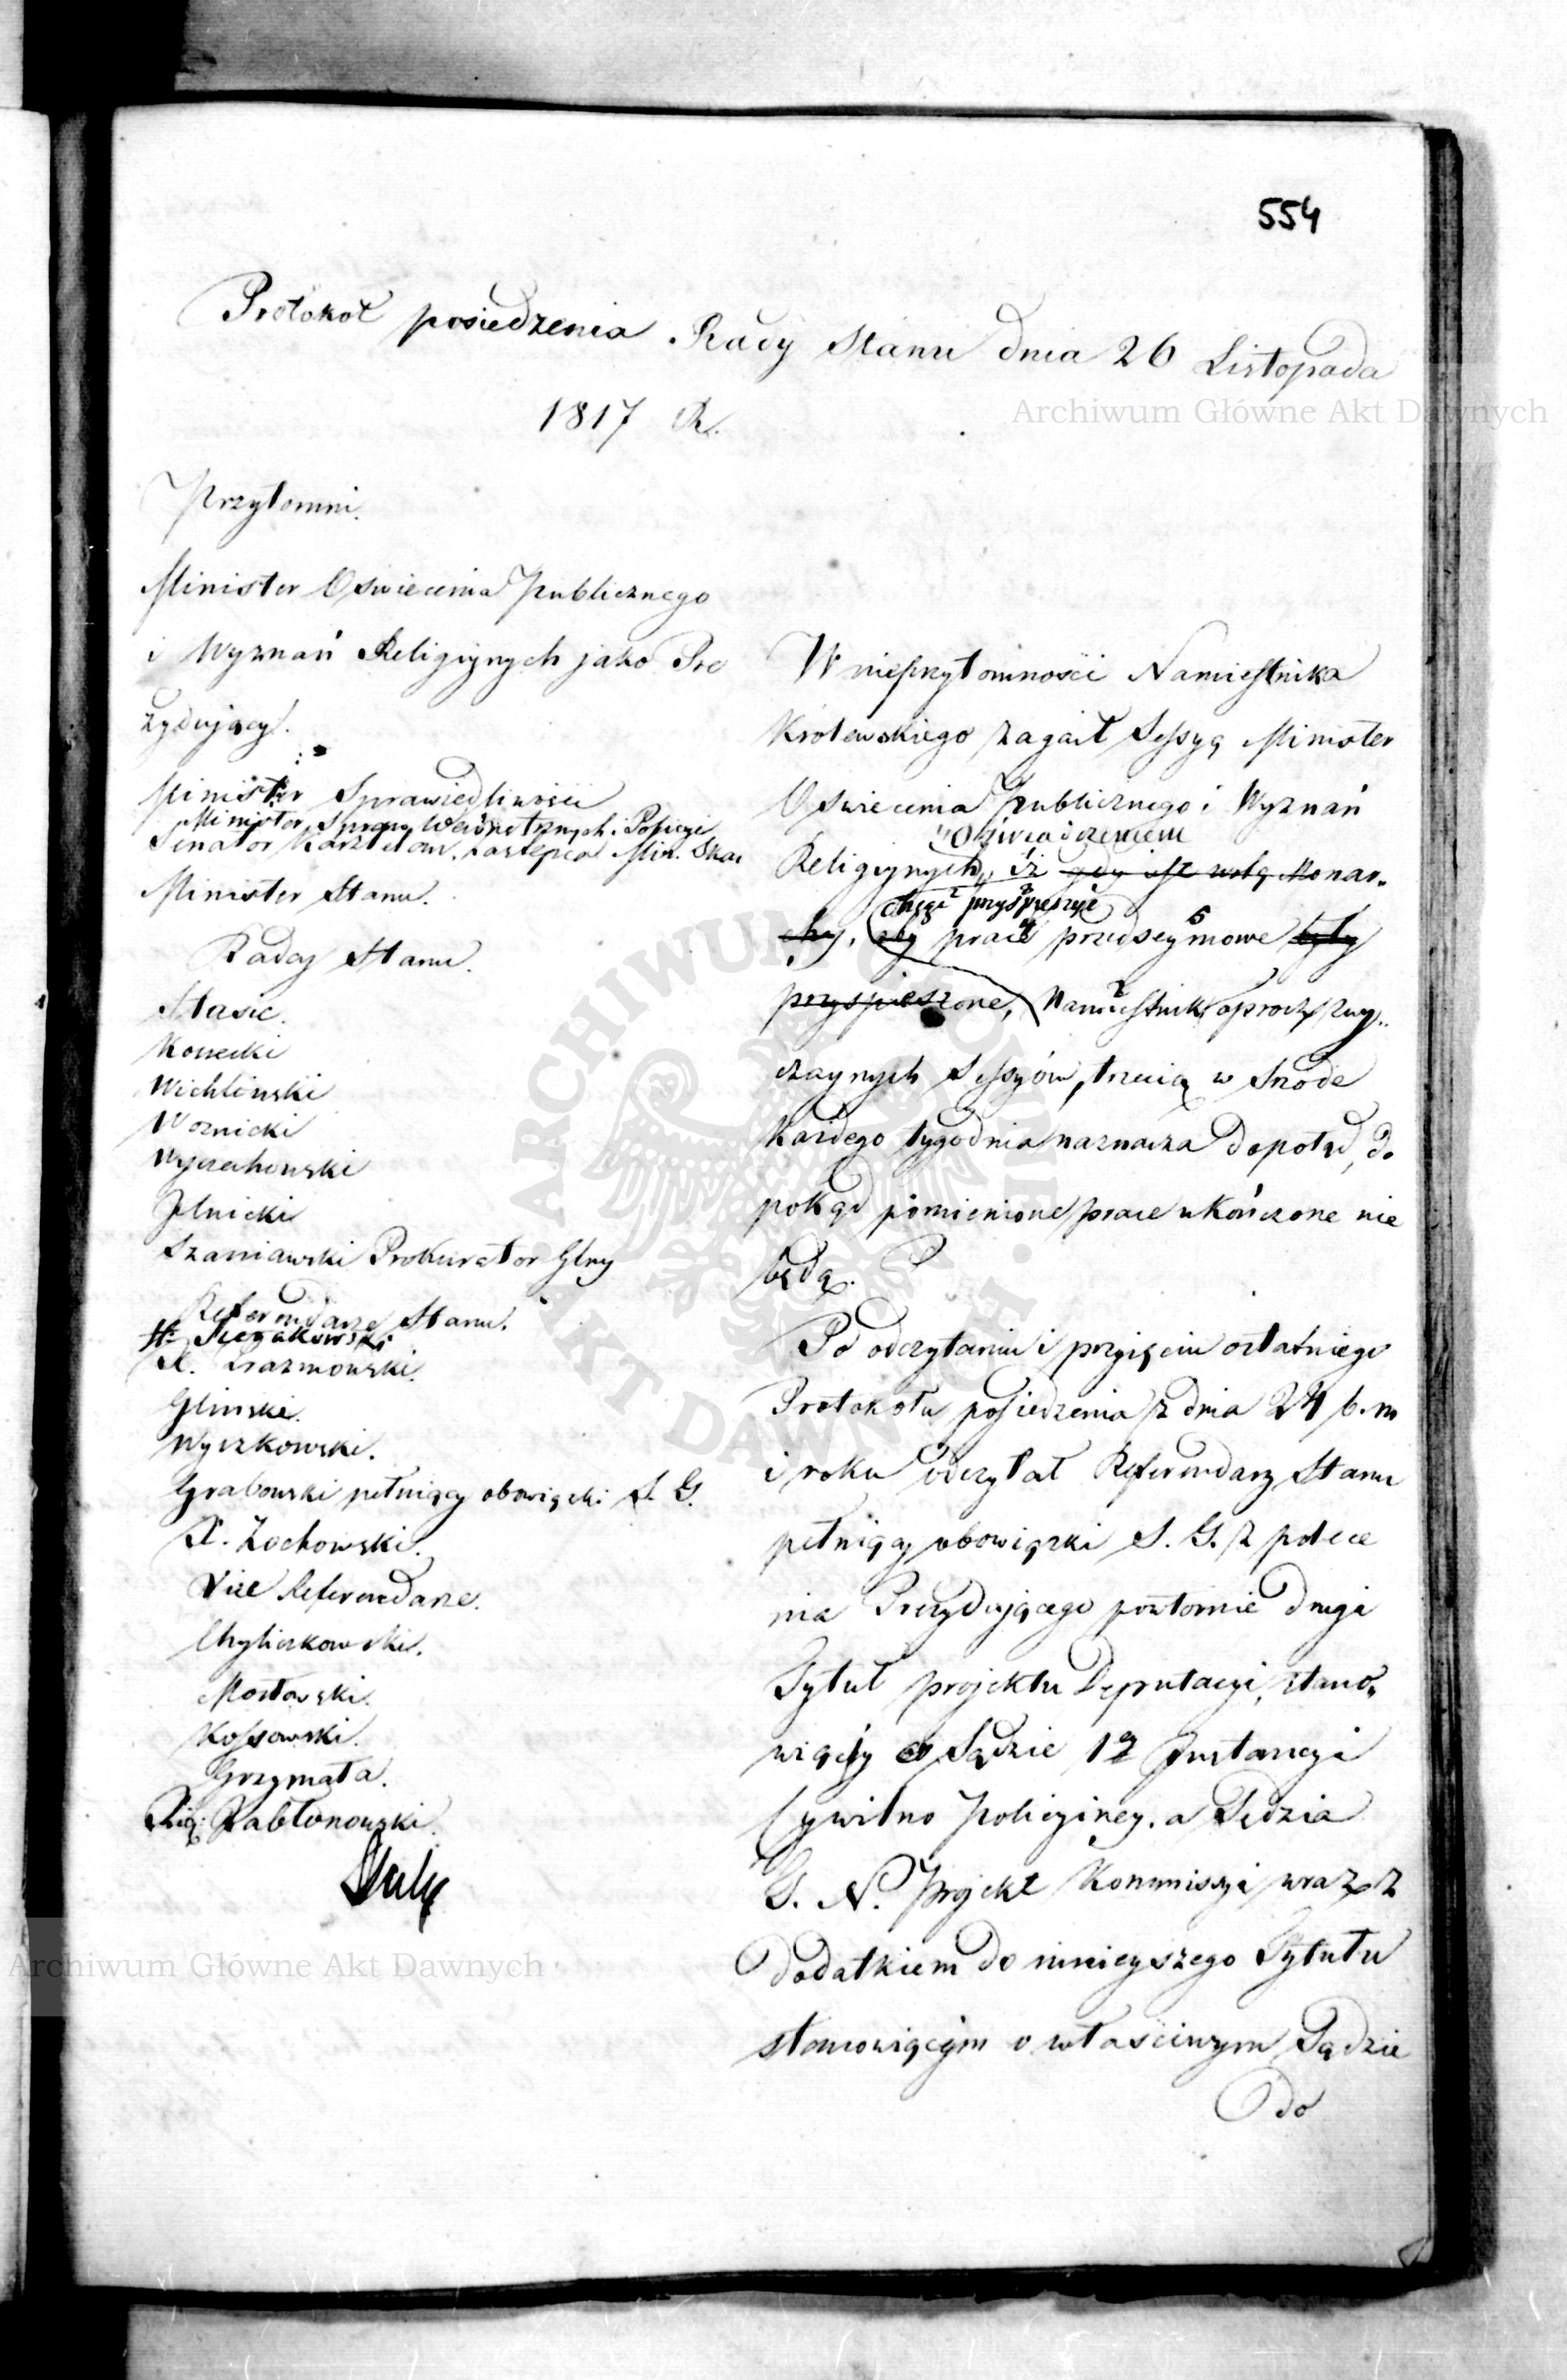 554
Protokoł posiedzenia Rady Stanu dnia 26 Listopada
1817 R.
Przytomni.
Minister Oswiecenia Publicznego
i Wyznań Religiynych jako Pre
zyduiący.
Minister Sprawiedliwości
Minister Spraw Wewnętrznych i Policyi
Senator Kasztelan, zastępca Min. Skar
Minister Stanu.
Radcy Stanu.
Stasic.
Kosecki
Wichlinski
Woznicki
Wyczechowski
Jelnicki
Szaniawski Prokurator Glny
Referendarze Stanu.
H. Sierakowski
X. Prazmowski.
Glinski.
Wyczkowski.
Grabowski pełniący obowiązki S. G.
X. Żochowski.
Vice Referendarze.
Chyliczkowski.
Mostowski.
Kossowski.
Grzymała.
Xią: Jabłonowski.
W nieprzytomności Namiestnika
Krolewskiego zagaił Sessyą Minister
Oswiecenia Publicznego i Wyznań
oświadczeniem
Religiynych, iż gdy jest wolą Monar-
chcąc przyśpieszyć
chy, aby prace przedseymowe były
przyspieszone, Namiestnik oprocz zwy-
czaynych Sessyów, trzecią w Srode
każdego tygodnia naznacza dopotąd, do
pokąd pomienione prace ukończone nie
będą.
Po odczytaniu i przyięciu ostatniego
Protokołu posiedzenia z dnia 24 b. m
i roku odczytał Referendarz Stanu
pełniący obowiązki S. G. z polece
nia Prezyduiącego powtornie drugi
Tytuł projektu Deputacyi, stano-
wiący o Sądzie 1a Instancyi
Cywilno Policyiney. a Sędzia
G. N. Projekt Kommissyi wraz z
dodatkiem do ninieyszego Tytułu
stanowiącym o właściwym Sądzie
do
Archiwum Główne Akt Dawnych
ARCHIWUM GŁÓWNE AKT DAWNYCH
Archiwum Główne Akt Dawnych